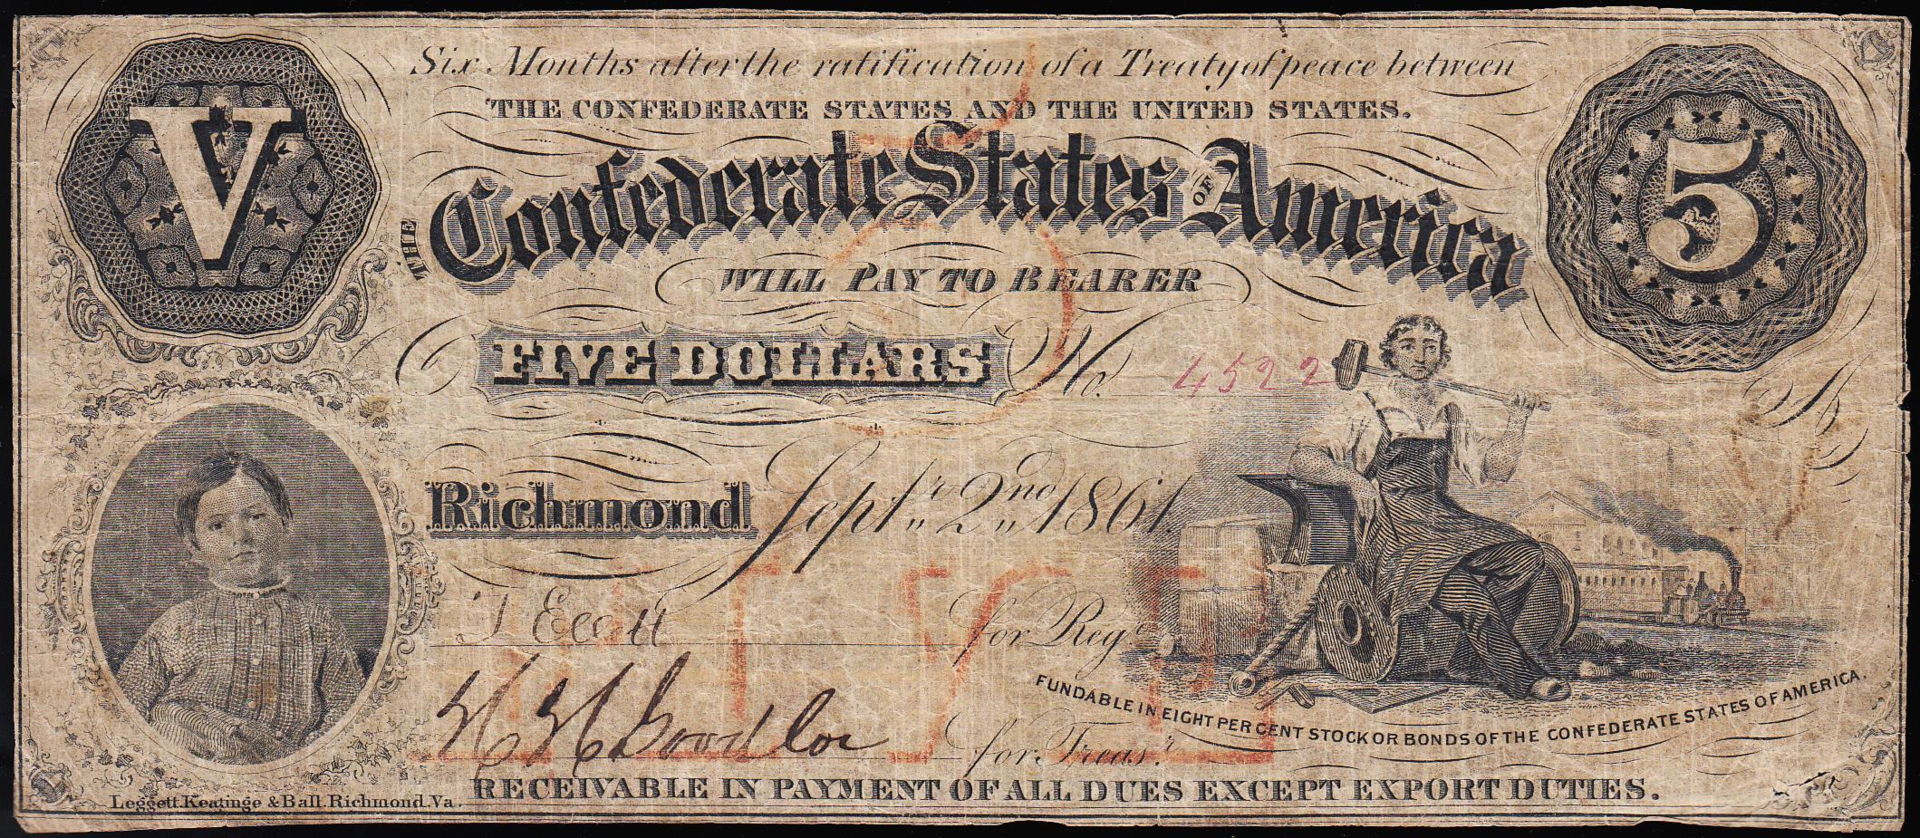 Six Months after the ratification of a Treaty of peace between
THE CONFEDERATE STATES AND THE UNITED STATES.
V
THE Confederate States OF America
5
WILL PAY TO BEARER
FIVE DOLLARS No. 4522
Richmond Sept.r 2nd 1861.
for Reg.r
for Treas.r
FUNDABLE IN EIGHT PER CENT STOCK OR BONDS OF THE CONFEDERATE STATES OF AMERICA.
RECEIVABLE IN PAYMENT OF ALL DUES EXCEPT EXPORT DUTIES.
Leggett, Keatinge & Ball, Richmond, Va.
FIVE